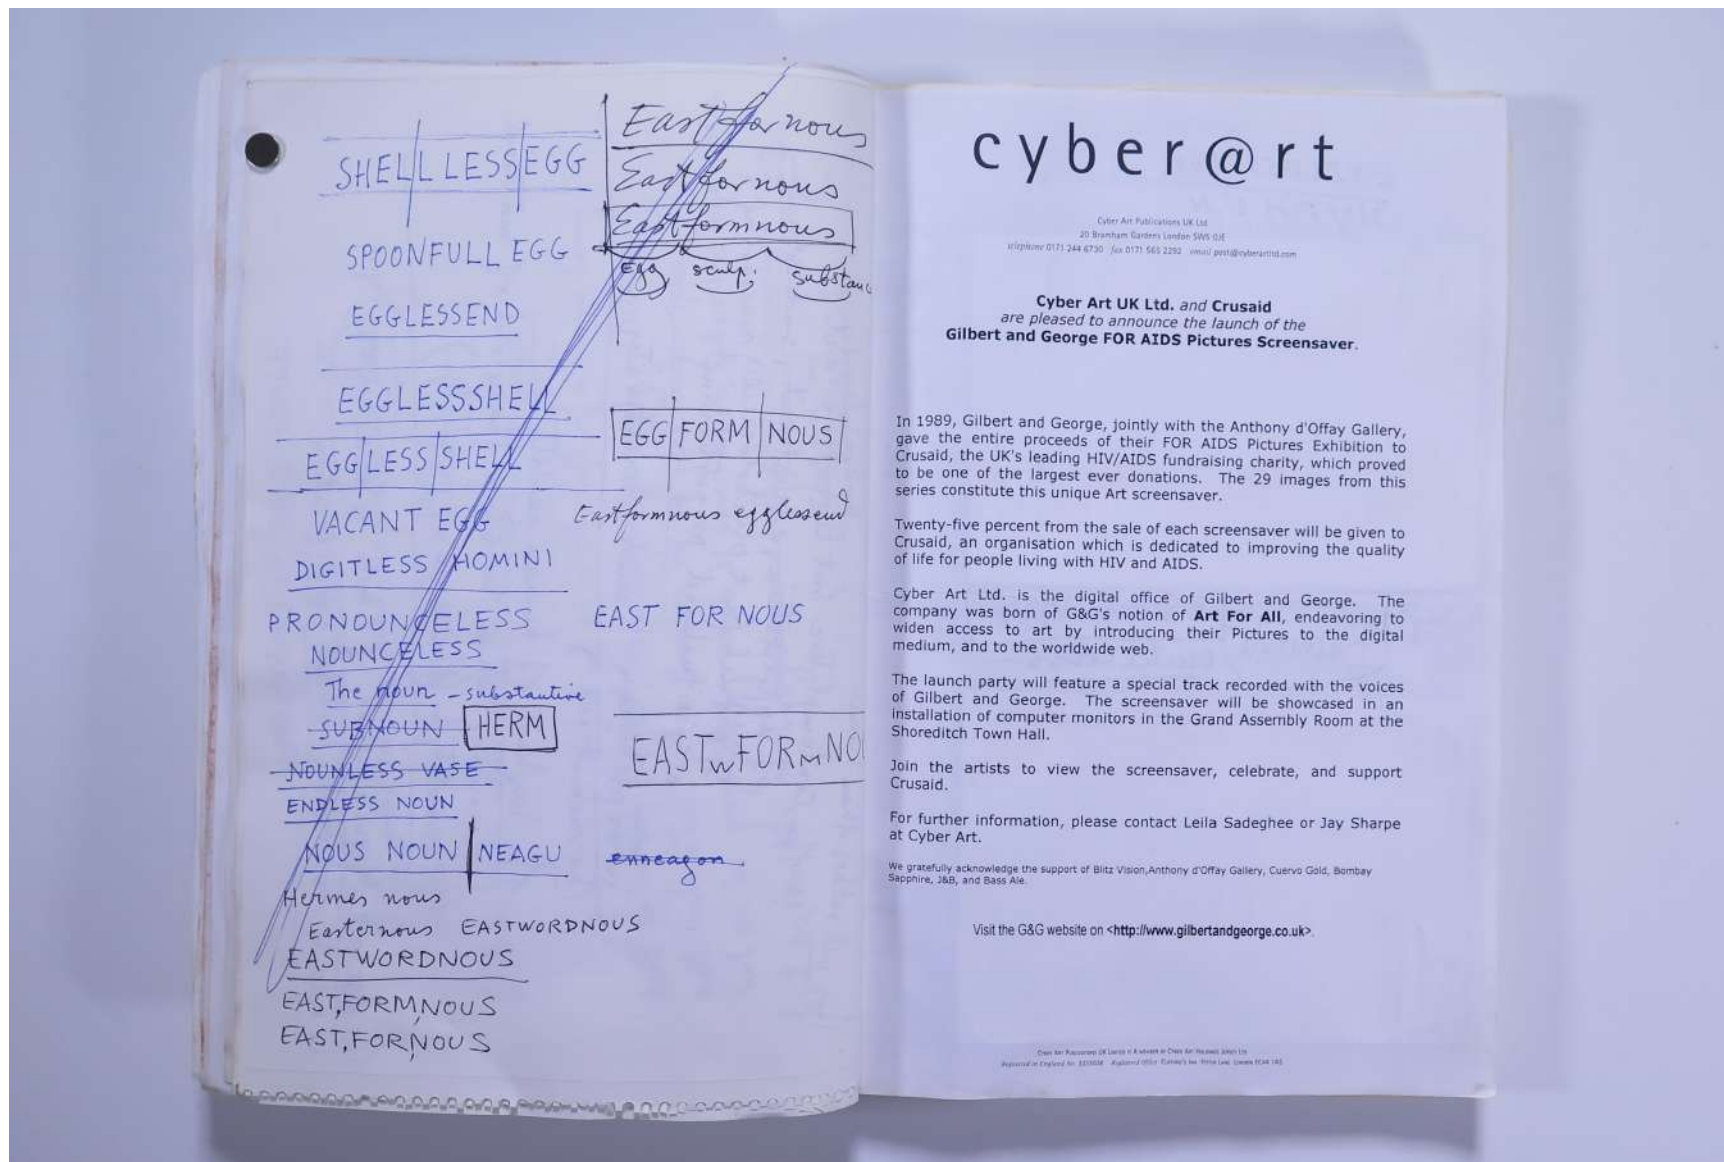 SHELL LESS EGG
SPOONFULL EGG
EGGLESSEND
EGGLESSSHELL
EGG LESS SHELL
VACANT EGG
DIGITLESS HOMINI
PRONOUNCELESS
NOUNCELESS
The noun - substantive
SUBNOUN HERM
NOUNLESS VASE
ENDLESS NOUN
NOUS NOUN NEAGU
enneagon
Hermes nous
Easternous EASTWORDNOUS
EASTWORDNOUS
EAST,FORM,NOUS
EAST,FOR,NOUS
East for nous
East for nous
Eastformnous
Egg sculp. substanc
EGG FORM NOUS
Eastformnous egglessend
EAST FOR NOUS
EASTwFORMNOU
cyber@rt
Cyber Art Publications UK Ltd
20 Bramham Gardens London SW5 0JE
telephone 0171 244 6730 fax 0171 565 2292 email post@cyberartltd.com
Cyber Art UK Ltd. and Crusaid
are pleased to announce the launch of the
Gilbert and George FOR AIDS Pictures Screensaver.
In 1989, Gilbert and George, jointly with the Anthony d'Offay Gallery,
gave the entire proceeds of their FOR AIDS Pictures Exhibition to
Crusaid, the UK's leading HIV/AIDS fundraising charity, which proved
to be one of the largest ever donations. The 29 images from this
series constitute this unique Art screensaver.
Twenty-five percent from the sale of each screensaver will be given to
Crusaid, an organisation which is dedicated to improving the quality
of life for people living with HIV and AIDS.
Cyber Art Ltd. is the digital office of Gilbert and George. The
company was born of G&G's notion of Art For All, endeavoring to
widen access to art by introducing their Pictures to the digital
medium, and to the worldwide web.
The launch party will feature a special track recorded with the voices
of Gilbert and George. The screensaver will be showcased in an
installation of computer monitors in the Grand Assembly Room at the
Shoreditch Town Hall.
Join the artists to view the screensaver, celebrate, and support
Crusaid.
For further information, please contact Leila Sadeghee or Jay Sharpe
at Cyber Art.
We gratefully acknowledge the support of Blitz Vision,Anthony d'Offay Gallery, Cuervo Gold, Bombay
Sapphire, J&B, and Bass Ale.
Visit the G&G website on <http://www.gilbertandgeorge.co.uk>.